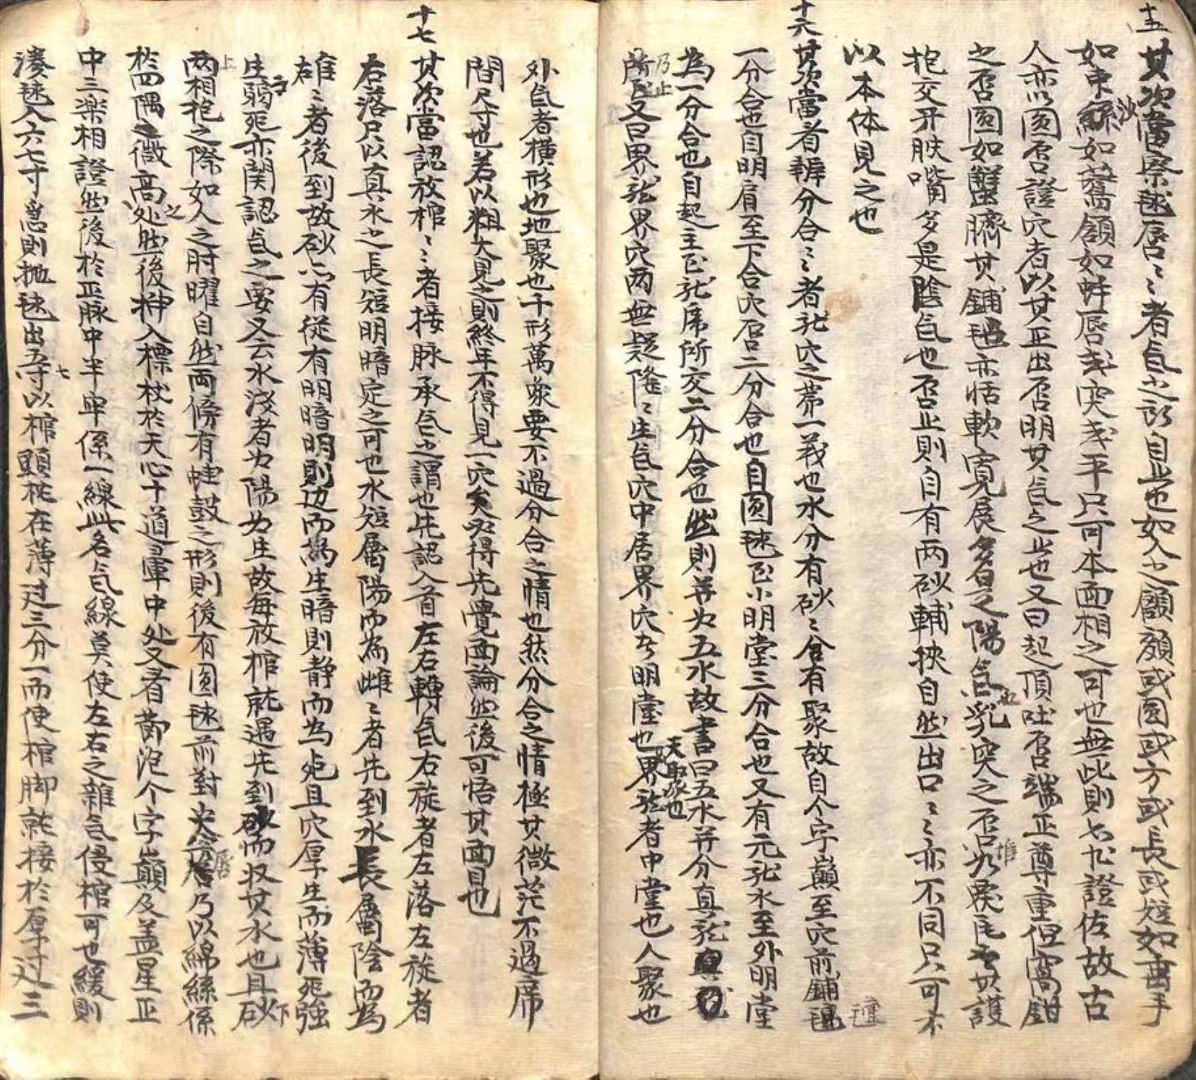 十五
其次當察毬唇〻者气之所自止也如人之顧頷或圓或方或長或短如垂手
如束緜如薦額如蚌唇或突或平只可本面相之可也無此則穴無證佐故古
人亦以圓否證穴者以其正出否明其气之止也又曰起頂吐否端正尊重但窩鉗
之否圓如蟹臍其鋪毡亦恬軟寬展多名之陽气乳突之否
抱交开肤嘴多是陰气也否止則自有两砂輔挾自然出口〻亦不同只可
以本体見之也
十六
其次當者辨分合〻者穴之第一義也水分有砂〻合有聚故自个字巔至穴前鋪毡
一分合也自明肩至下合穴否二分合也自圓毬至小明堂三分合也又有元水至外明堂
為一分合也自起主至龙席所交二分合也然則并为五水故書曰五水并分真龙
所又曰界龙界穴两無疑隆〻生气穴中居界穴者明堂也界龙者中堂也人聚也
天聚也
外气者橫形也地聚也千形萬象要不過分合之情也然分合之情極其微茫不過席
間尺寸也若以粗大見之則終年不得見一穴矣必得先覺面論然後可悟其面目也
十七
其次當認放棺〻者接脉承气之謂也先認入首左右轉气右旋者左落左旋者
右落只以真水之長短明暗定之可也水短屬陽而為雌〻者先到水長屬陰而為
雄〻者後到故砂亦有從有明暗明則边而為生暗則静而為死且穴厚生而薄死強
生弱死亦関認气之要又云水淺者为陽为生故每放棺就遇先到砂而收其水也且砂
两相抱之際如人之肘曜自然両傍有蛙鼓之形則後有圓毬前對尖唇乃以綿絲係
於四隅之微高处然後揷入標杖於天心十道暈中处又看節泡个字巔及盖星正
中三樂相證然後於正脉中半牢係一線此名气線莫使左右之雜气侵棺可也緩則
湊毬入六七寸急則抛毬出寸以棺頭枕在薄过三分一而使棺脚就接於厚过三